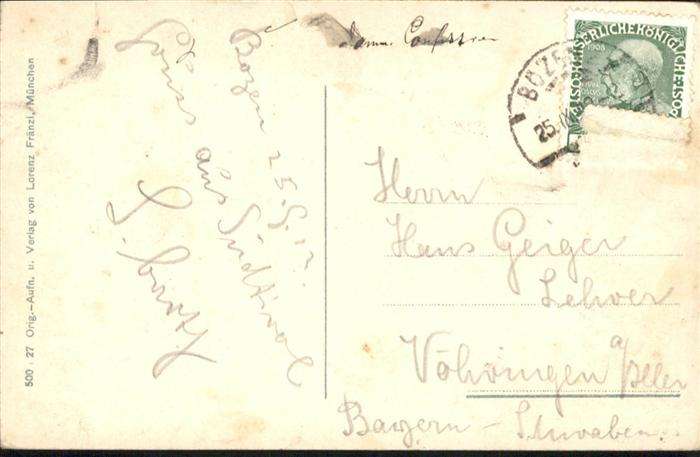 500 : 27 Orig.-Aufn. u. Verlag von Lorenz Fränzl, München
Bozen 25.9.12.
Gruss aus Südtirol
KAISERLICHE KÖNIGLICHE
1908
BOZEN
25.
Herrn
Hans Geiger
Lehrer
Vöhringen a/Iller
Bayern – Schwaben.